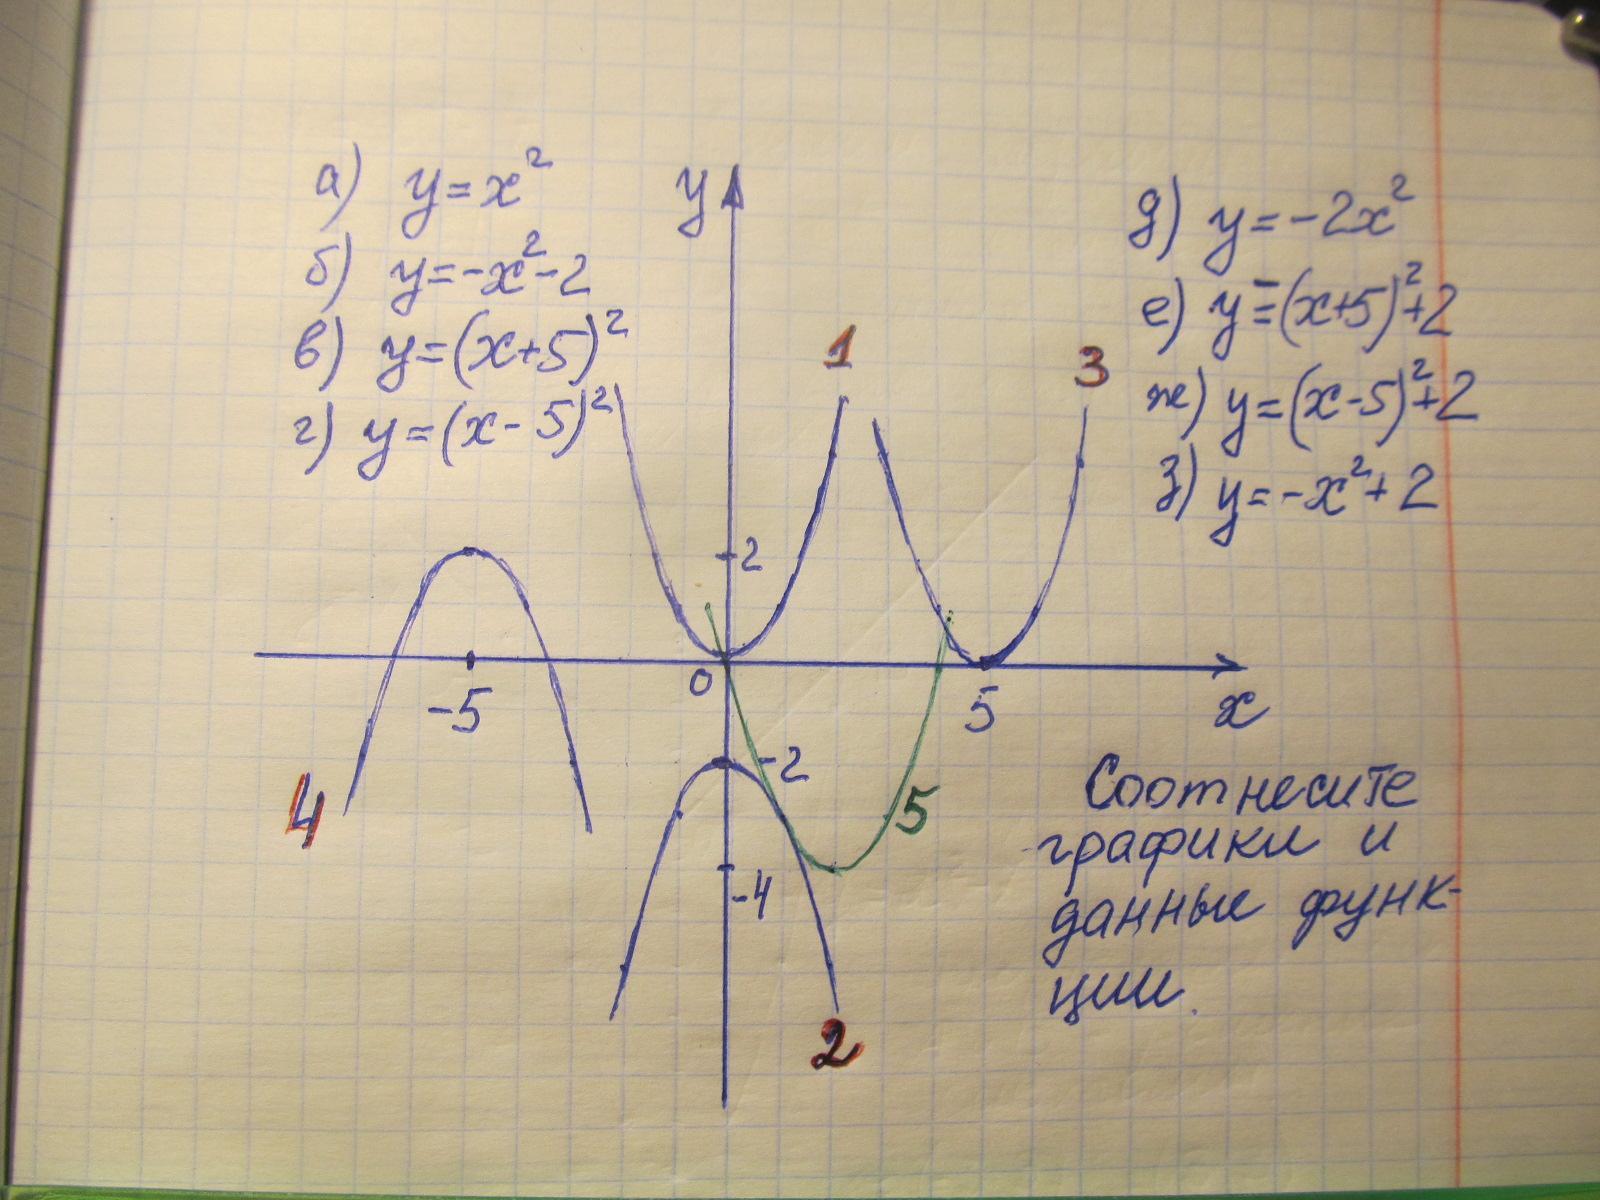 а) y = x²
б) y = -x² - 2
в) y = (x+5)²
г) y = (x - 5)²
y
1
3
д) y = -2x²
е) y = -(x+5)² + 2
ж) y = (x-5)² + 2
з) y = -x² + 2
2
0
-5
5
x
-2
4
5
-4
2
Соотнесите
графики и
данные функ-
ции.